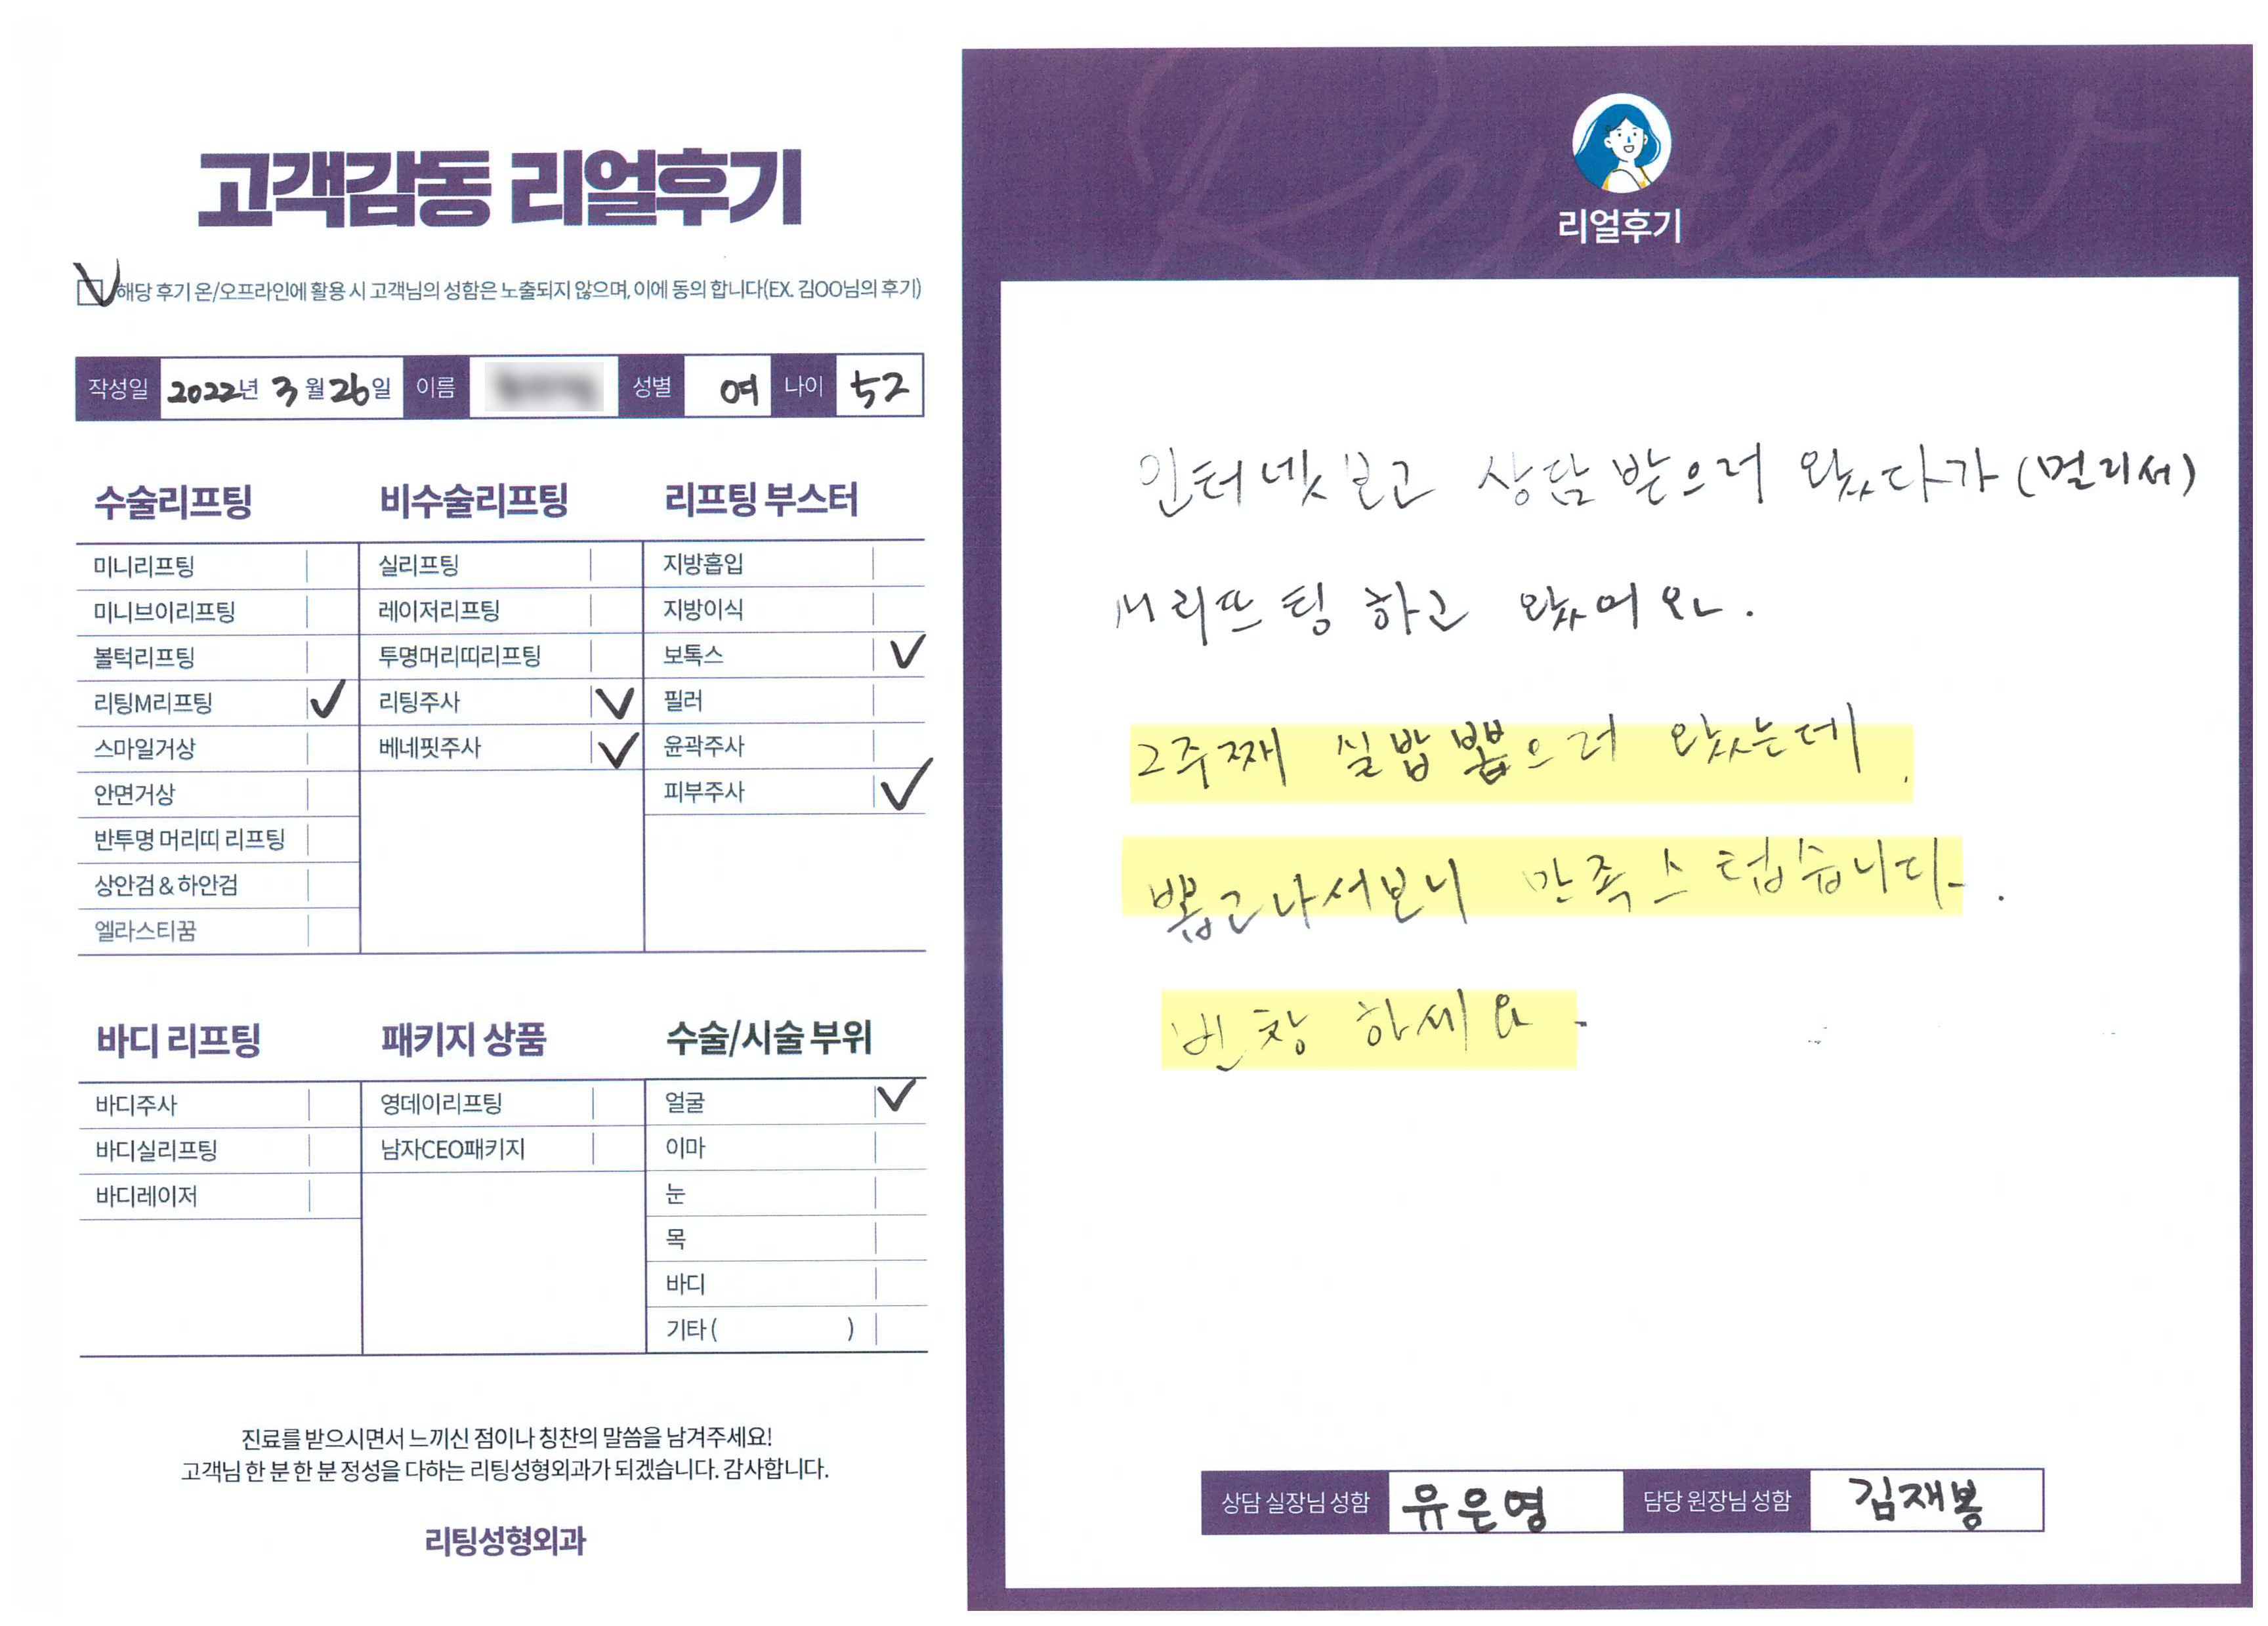 고객감동 리얼후기
해당 후기 온/오프라인에 활용 시 고객님의 성함은 노출되지 않으며, 이에 동의 합니다(EX. 김OO님의 후기)
작성일 2022년 3월 26일 이름 성별 여 나이 52
수술리프팅
미니리프팅
미니브이리프팅
볼턱리프팅
리팅M리프팅
스마일거상
안면거상
반투명 머리띠 리프팅
상안검 & 하안검
엘라스티꿈
비수술리프팅
실리프팅
레이저리프팅
투명머리띠리프팅
리팅주사
베네핏주사
리프팅 부스터
지방흡입
지방이식
보톡스
필러
윤곽주사
피부주사
바디 리프팅
바디주사
바디실리프팅
바디레이저
패키지 상품
영데이리프팅
남자CEO패키지
수술/시술 부위
얼굴
이마
눈
목
바디
기타 ( )
진료를 받으시면서 느끼신 점이나 칭찬의 말씀을 남겨주세요!
고객님 한 분 한 분 정성을 다하는 리팅성형외과가 되겠습니다. 감사합니다.
리팅성형외과
Review
리얼후기
인터넷보고 상담 받으러 왔다가 (멀리서)
M리프팅 하고 왔어요.
2주째 실밥뽑으러 왔는데.
뽑고나서보니 만족스럽습니다.
번창 하세요.
상담 실장님 성함 유은영 담당 원장님 성함 김재봉